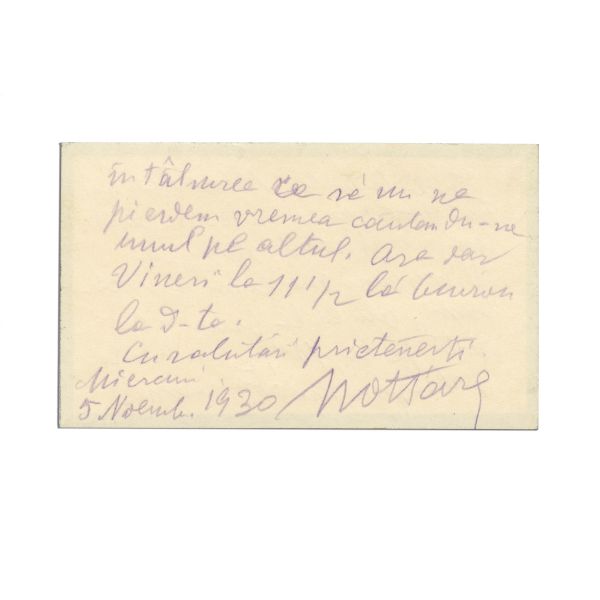 întâlnirea ca să nu ne
pierdem vremea căutându-ne
unul pe altul. Așa dar
Vineri la 11 1/2 la birou
la d-ta.
Cu salutări prietenești
Miercuri
5 Noemb. 1930